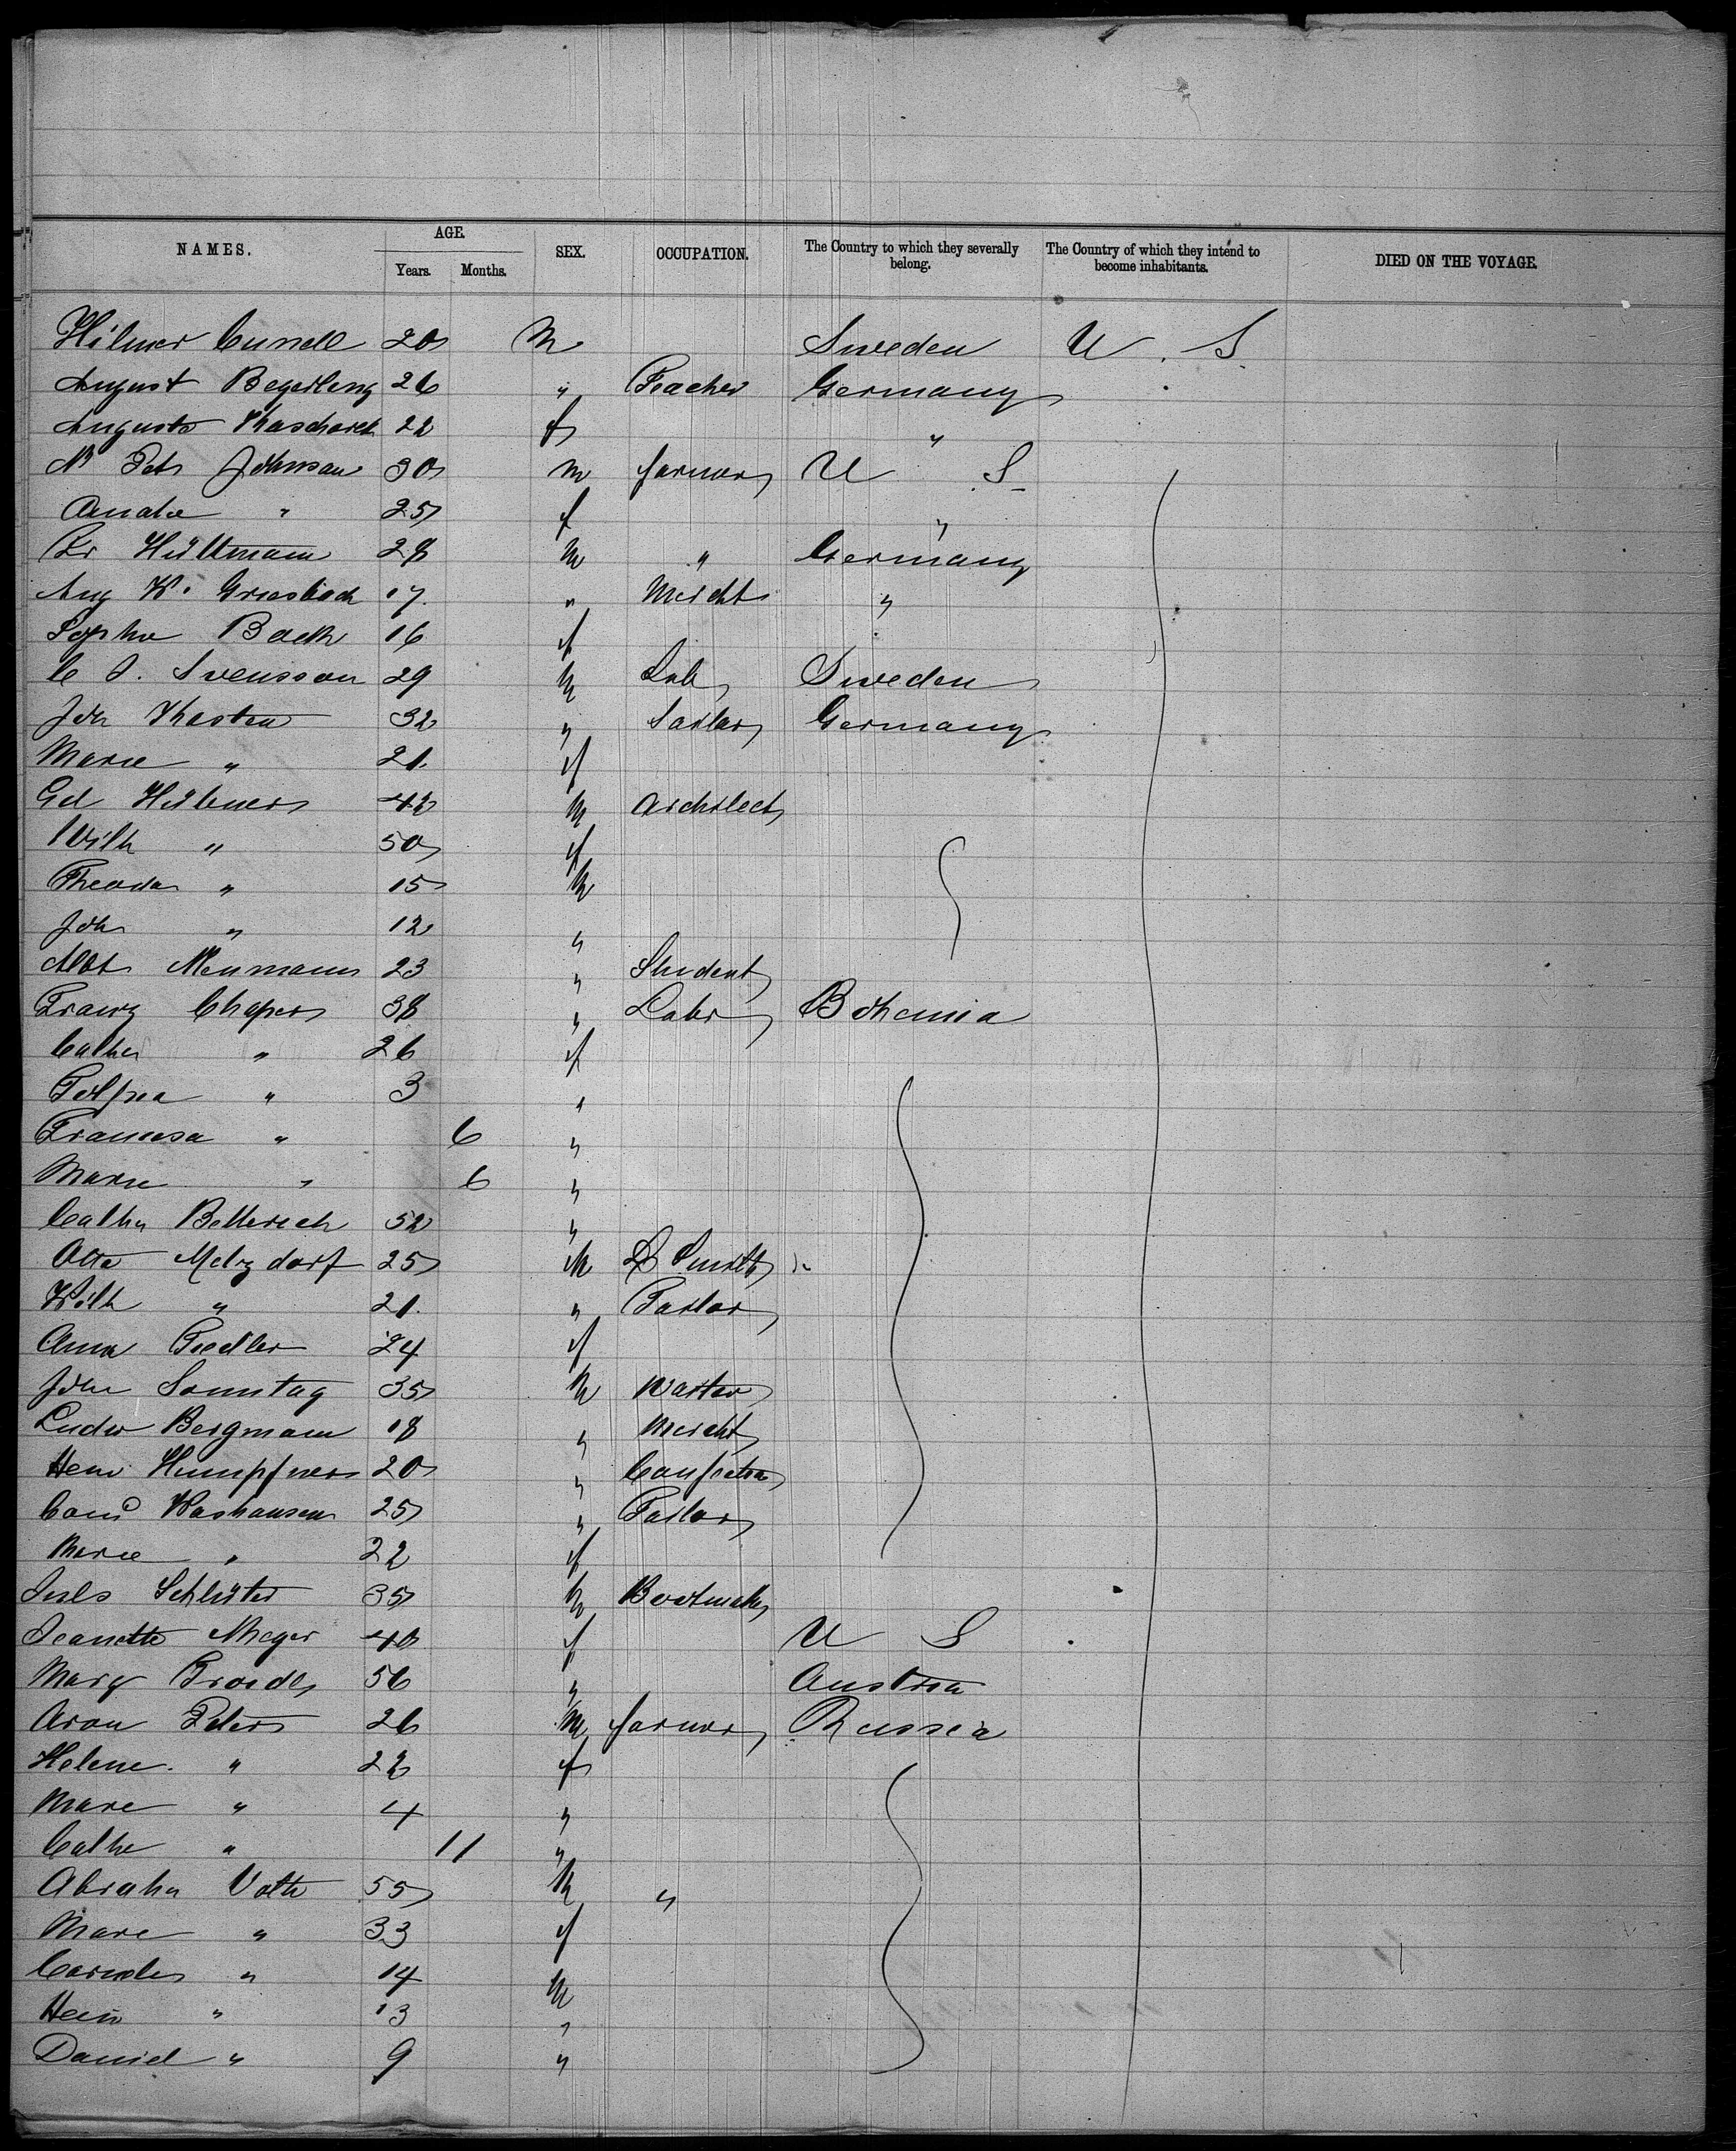 NAMES. AGE. Years. Months. SEX. OCCUPATION. The Country to which they severally belong. The Country of which they intend to become inhabitants. DIED ON THE VOYAGE.
Hilmer 20 M Sweden U. S
August 26 " Teacher Germany
Auguste 22 f "
N Petr Johnson 30 m farmer U S
25 f "
Hültmann 28 m " Germany
Aug W. Griesbach 17 " Mercht "
Sophie Back 16 f
C J. Svensson 29 m Lab Sweden
Joh Kasten 32 " Sailor Germany
Marie " 21 f
Hübner 42 m Architect
Wilh " 50 f
Theodor " 15 m
Joh " 12 "
Neumann 23 " Student
Franz Chaper 38 " Labr Bohemia
Cathr " 26 f
" 3 "
Francesa " 6 "
Marie " 6 "
Catha Betterich 52 "
Otto Metzdorf 25 m Smith
Wilh " 21 " Tailor
Anna Fiedler 24 f
John Sonntag 35 m Waiter
Ludw Bergmann 18 " Mercht
Heinr Humpfner 20 " Confectr
Washausen 25 " Tailor
Marie " 22 f
Schlüter 35 m Bootmakr
Jeanette Meyer 40 f U S
Marg 56 " Austria
Aron Peters 26 m farmer Russia
Helene. " 22 f
Marie " 4 "
Cathe " 11 "
Abrahm Voth 55 m "
Marie " 33 f
Cornels " 14 m
Hein " 13 "
Daniel " 9 "